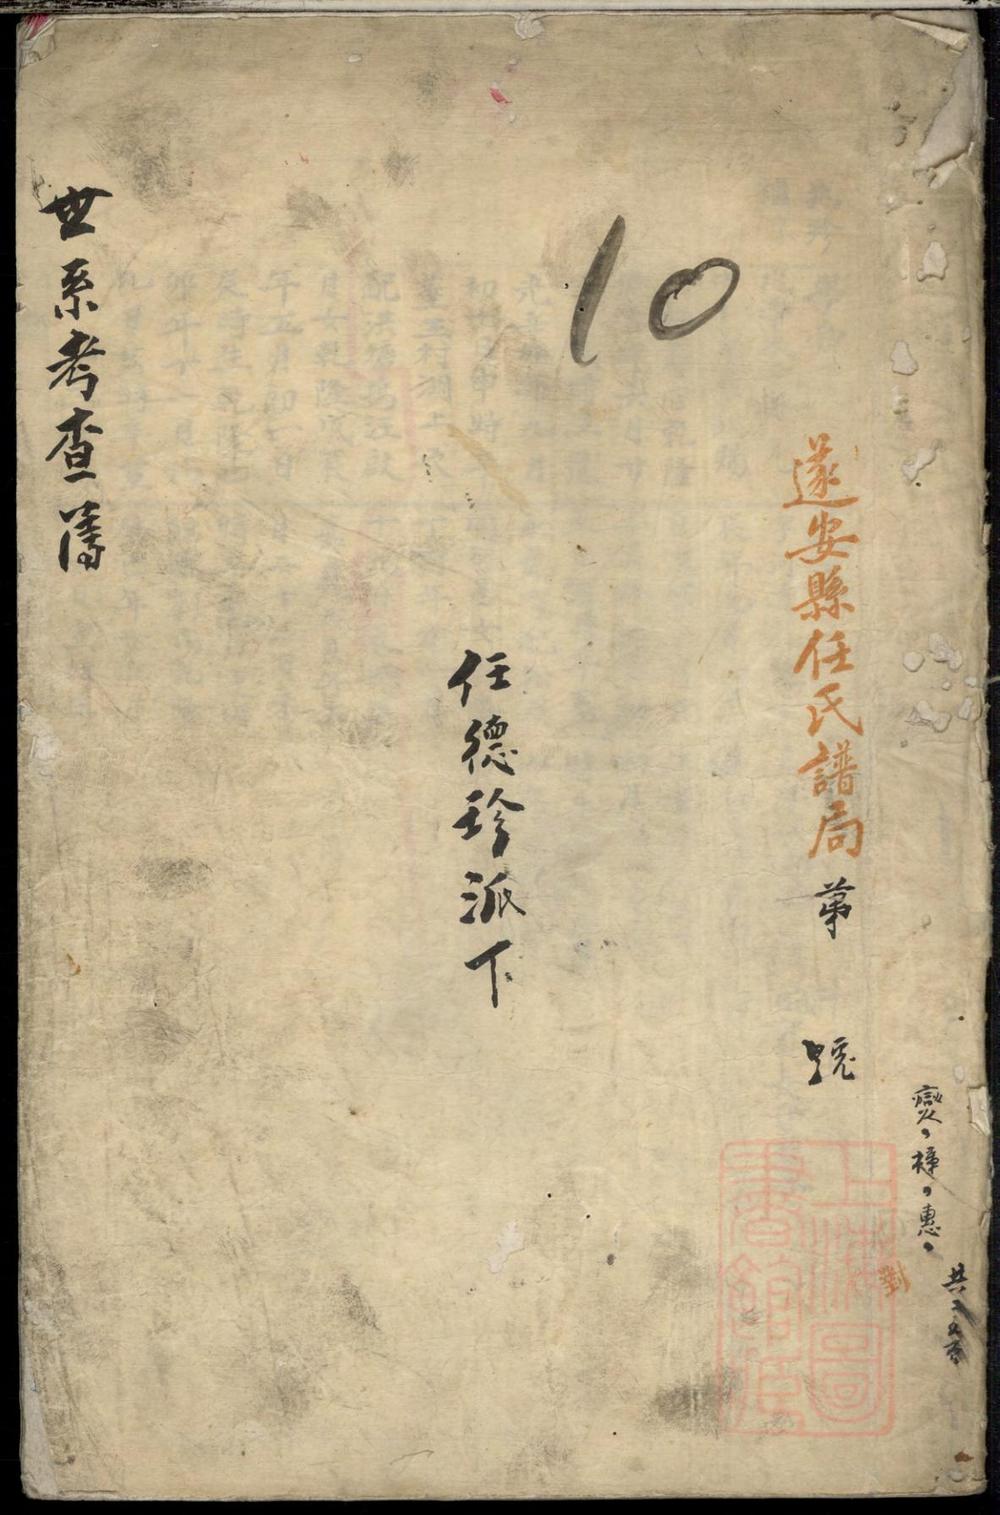 遂安縣任氏譜局 第 號
燮、樟、惠、
共
10
任德珍派下
世系考查簿
上海圖書館藏